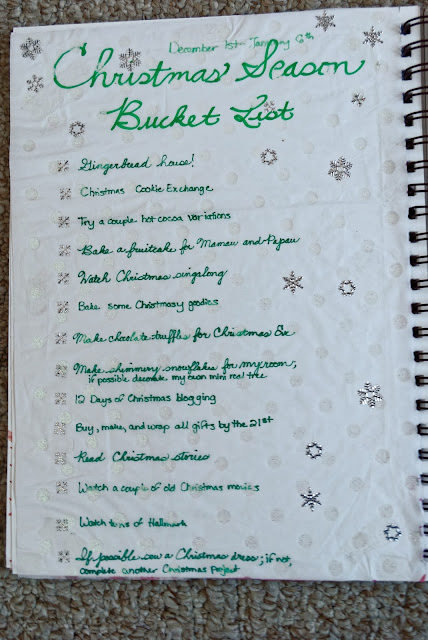 December 1st - January 6th
Christmas Season
Bucket List
Gingerbread house!
Christmas Cookie Exchange
Try a couple hot cocoa variations
Bake a fruitcake for Mamaw and Papaw
Watch Christmas singalong
Bake some Christmasy goodies
Make chocolate truffles for Christmas Eve
Make shimmery snowflakes for my room,
if possible decorate my own mini real tree
12 Days of Christmas blogging
Buy, make, and wrap all gifts by the 21st
Read Christmas stories
Watch a couple of old Christmas movies
Watch tons of Hallmark
If possible sew a Christmas dress; if not,
complete another Christmas project